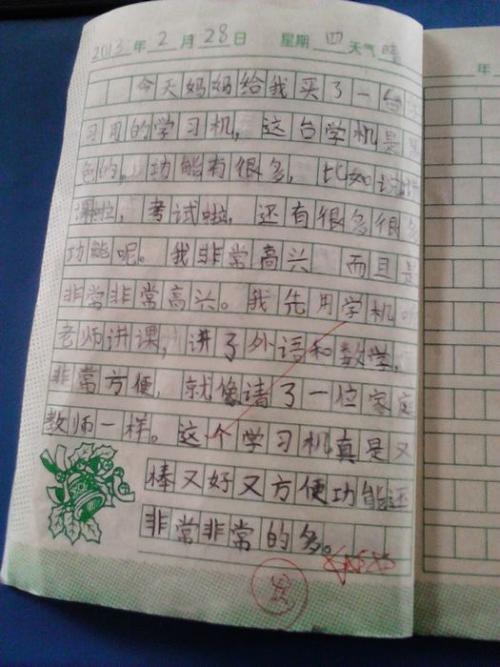 2013年2月28日 星期四天气晴
今天妈妈给我买了一台学
习用的学习机，这台学机是
色的，功能有很多，比如讲
课啦，考试啦，还有很多很多
功能呢。我非常高兴 而且是
非常非常高兴。我先用学机听
老师讲课，讲了外语和数学，
非常方便，就像请了一位家庭
教师一样。这个学习机真是又
棒又好又方便功能还
非常非常的多。
年